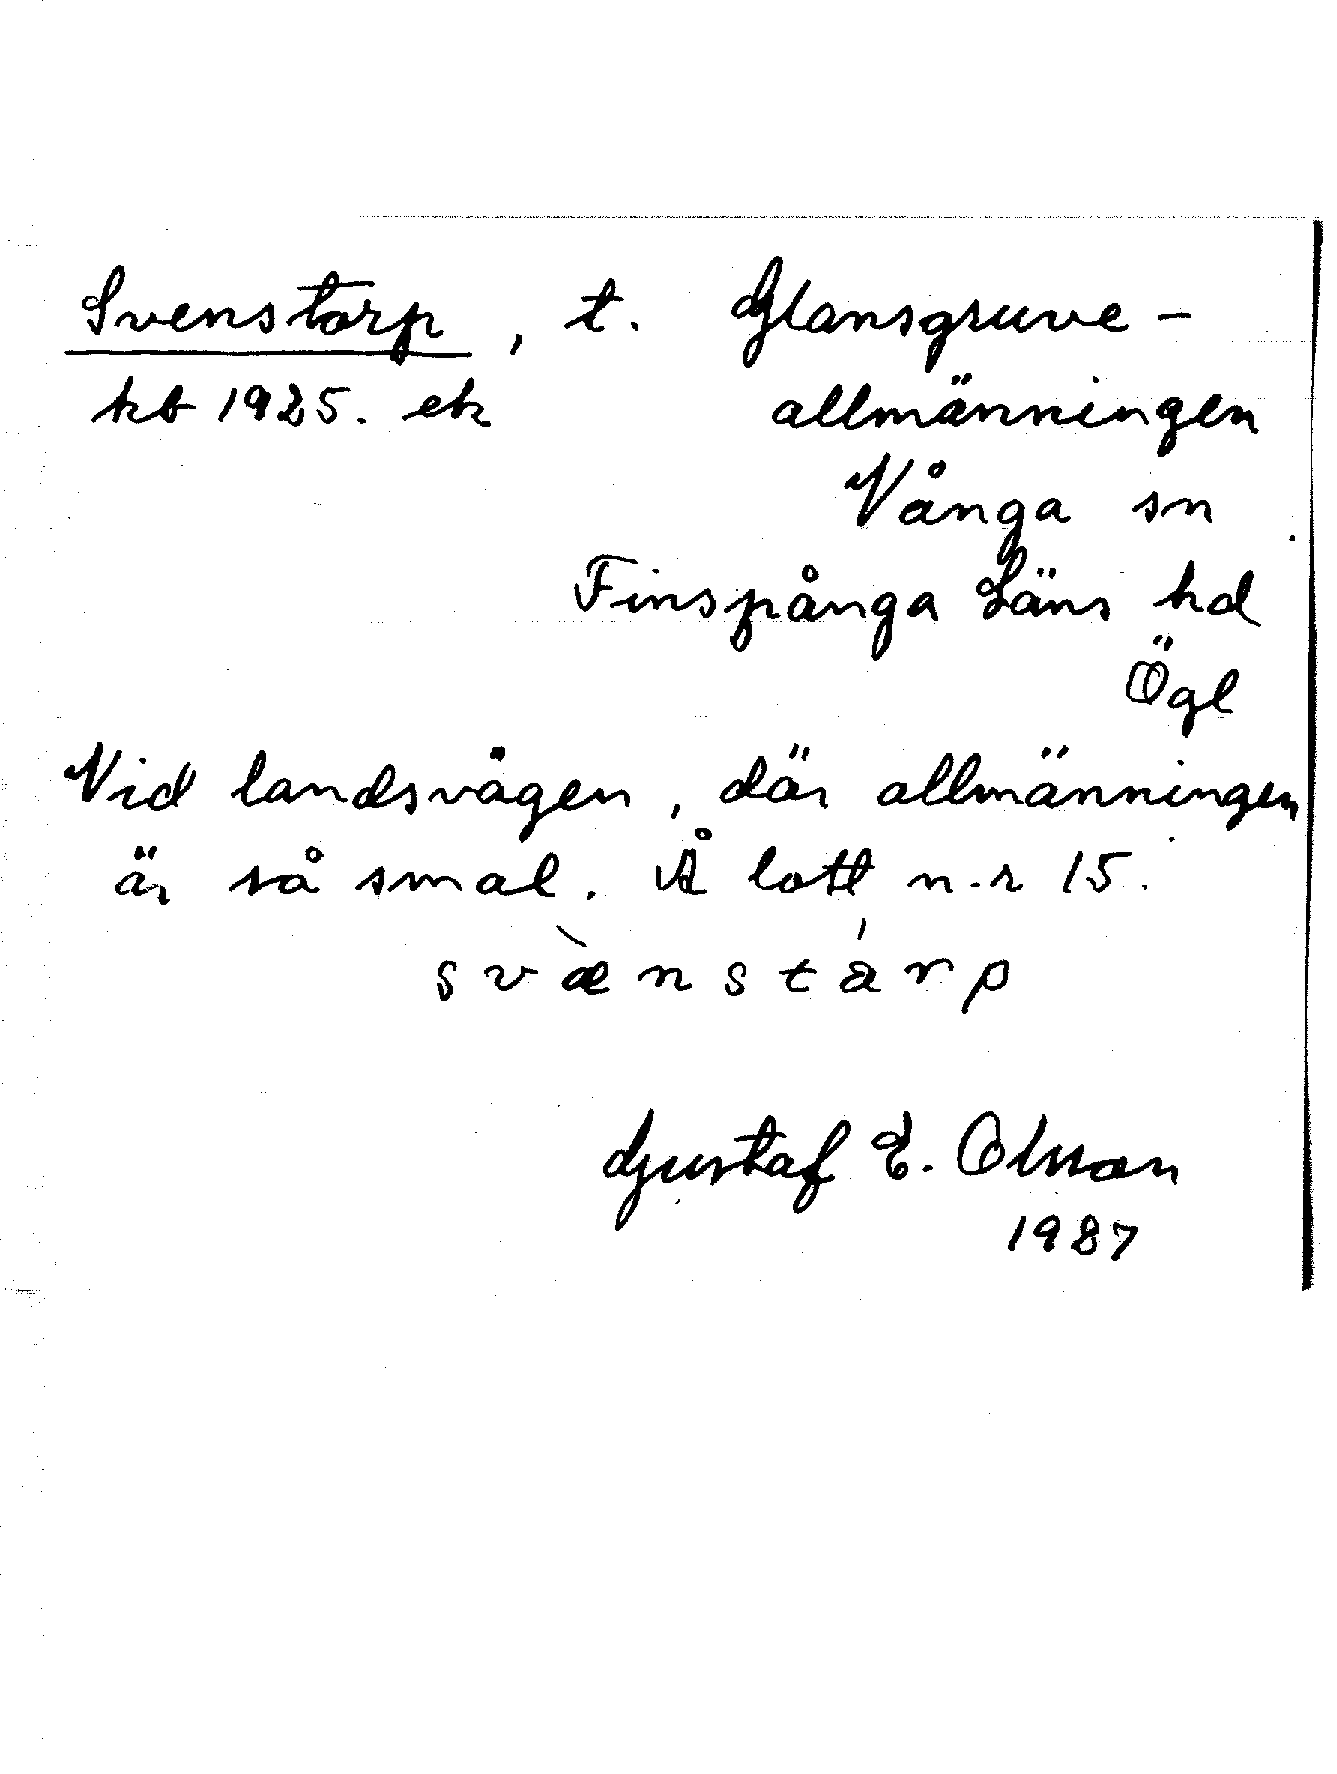 Svenstorp, t. Glansgruve-
kb 1925. ek allmänningen
Vånga sn
Finspånga Läns hd
Ögl
Vid landsvägen, där allmänningen
är så smal. Å lott n.r 15.
svæ̀nstá̊rp
Gustaf E. Olsson
1987